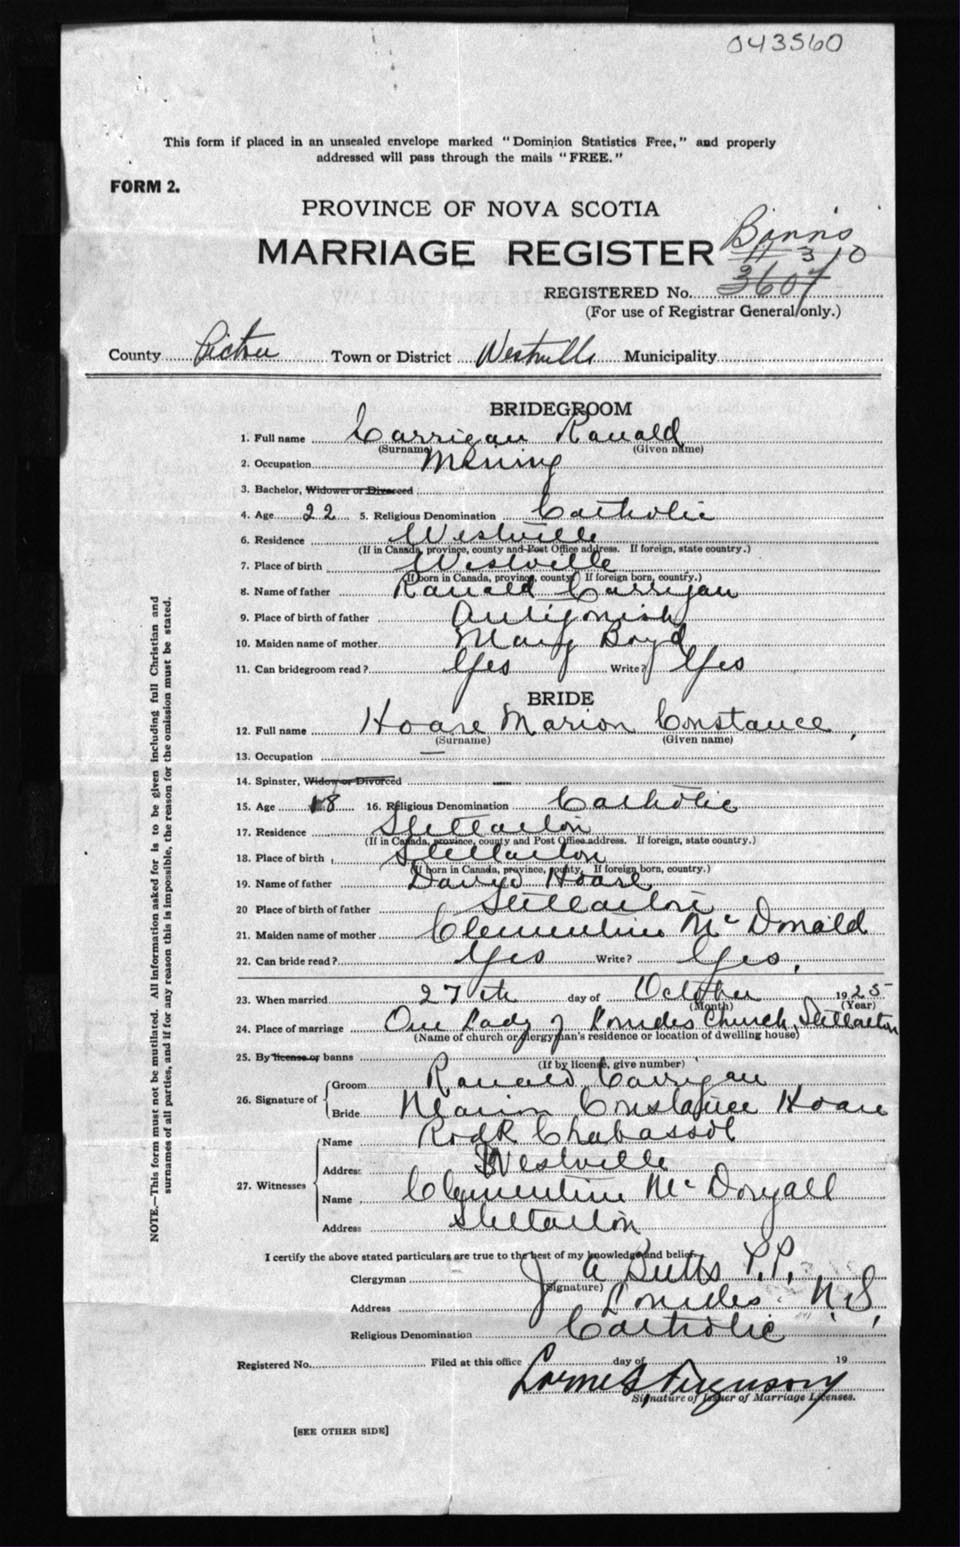 043560
This form if placed in an unsealed envelope marked "Dominion Statistics Free," and properly
addressed will pass through the mails "FREE."
FORM 2.
PROVINCE OF NOVA SCOTIA
MARRIAGE REGISTER
Banns
310
REGISTERED No. 3607
(For use of Registrar General only.)
County Pictou Town or District Westville Municipality
BRIDEGROOM
1. Full name Carrigan Ronald
(Surname) (Given name)
2. Occupation Mining
3. Bachelor, Widower or Divorced
4. Age 22 5. Religious Denomination Catholic
6. Residence Westville
(If in Canada, province, county and Post Office address. If foreign, state country.)
7. Place of birth Westville
(If born in Canada, province, county. If foreign born, country.)
8. Name of father Ronald Carrigan
9. Place of birth of father Antigonish
10. Maiden name of mother Mary Boyd
11. Can bridegroom read? Yes Write? Yes
BRIDE
12. Full name Hoare Marion Constance,
(Surname) (Given name)
13. Occupation —
14. Spinster, Widow or Divorced —
15. Age 18 16. Religious Denomination Catholic
17. Residence Stellarton
(If in Canada, province, county and Post Office address. If foreign, state country.)
18. Place of birth Stellarton
(If born in Canada, province, county. If foreign born, country.)
19. Name of father Hoare
20 Place of birth of father Stellarton
21. Maiden name of mother Clementine McDonald
22. Can bride read? Yes Write? Yes,
23. When married 27th day of October 1925
(Month) (Year)
24. Place of marriage Our Lady of Lourdes Church, Stellarton
(Name of church or clergyman's residence or location of dwelling house)
25. By license or banns
(If by license, give number)
26. Signature of
Groom Ronald Carrigan
Bride Marion Constance Hoare
27. Witnesses
Name RodR Chabassol
Address Westville
Name Clementine McDougall
Address Stellarton
I certify the above stated particulars are true to the best of my knowledge and belief.
Clergyman J A Butts P.P.
(Signature)
Address Lourdes N.S.
Religious Denomination Catholic
Registered No. Filed at this office day of 19
Lorne G Ferguson
Signature of Issuer of Marriage Licenses.
[SEE OTHER SIDE]
NOTE.—This form must not be mutilated. All information asked for is to be given including full Christian and
surnames of all parties, and if for any reason this is impossible, the reason for the omission must be stated.